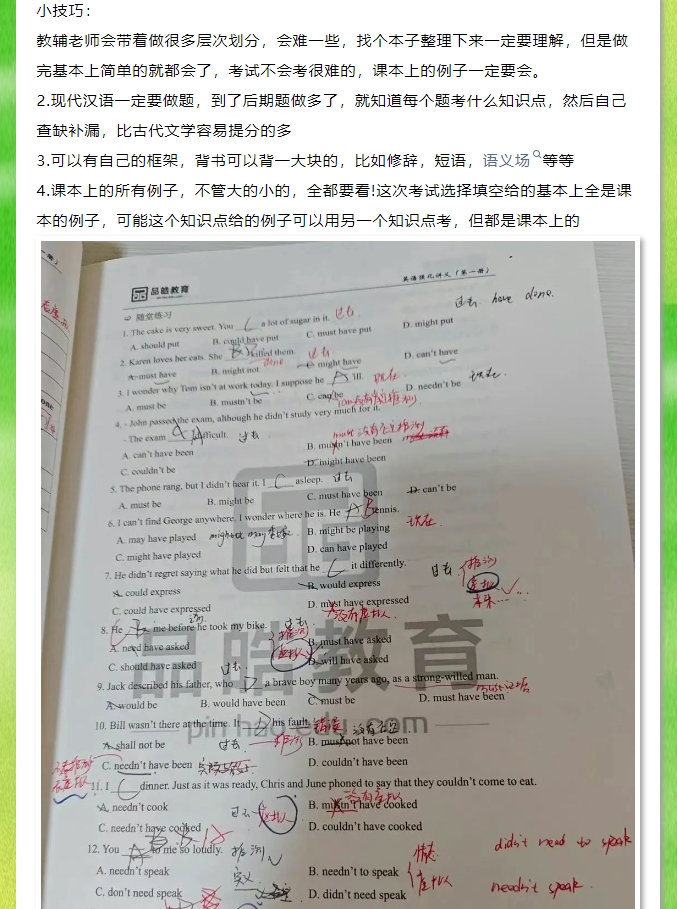 小技巧：
教辅老师会带着做很多层次划分，会难一些，找个本子整理下来一定要理解，但是做
完基本上简单的就都会了，考试不会考很难的，课本上的例子一定要会。
2.现代汉语一定要做题，到了后期题做多了，就知道每个题考什么知识点，然后自己
查缺补漏，比古代文学容易提分的多
3.可以有自己的框架，背书可以背一大块的，比如修辞，短语，语义场等等
4.课本上的所有例子，不管大的小的，全都要看!这次考试选择填空给的基本上全是课
本的例子，可能这个知识点给的例子可以用另一个知识点考，但都是课本上的
品皓教育
英语强化讲义（第一册）
随堂练习
过去 have done.
1. The cake is very sweet. You C a lot of sugar in it. 过去
A. should put B. could have put C. must have put D. might put
2. Karen loves her cats. She killed them. 过去
A. must have B. might not C. might have D. can't have
3. I wonder why Tom isn't at work today. I suppose he A ill. 现在
A. must be B. mustn't be C. can be D. needn't be 现在.
4. - John passed the exam, although he didn't study very much for it.
- The exam A difficult. 过去
A. can't have been B. mustn't have been
C. couldn't be D. might have been
5. The phone rang, but I didn't hear it. I C asleep. 过去
A. must be B. might be C. must have been D. can't be
6. I can't find George anywhere. I wonder where he is. He B tennis. 现在.
A. may have played B. might be playing
C. might have played D. can have played
7. He didn't regret saying what he did but felt that he C it differently. 过去 推测 虚拟
A. could express B. would express
C. could have expressed D. must have expressed
没有虚拟.
8. He me before he took my bike. 过去
A. need have asked B. must have asked
C. should have asked 过去. D. will have asked
9. Jack described his father, who D a brave boy many years ago, as a strong-willed man.
A. would be B. would have been C. must be D. must have been
10. Bill wasn't there at the time. It D his fault.
A. shall not be 过去 推测 B. must not have been
C. needn't have been D. couldn't have been
11. I C dinner. Just as it was ready, Chris and June phoned to say that they couldn't come to eat.
没有虚拟
A. needn't cook 过去 虚拟 B. mustn't have cooked
C. needn't have cooked D. couldn't have cooked
12. You A to me so loudly. 推测 情态 didn't need to speak
A. needn't speak B. needn't to speak 虚拟
C. don't need speak D. didn't need speak needn't speak.
品皓教育
pinhaoedu.com